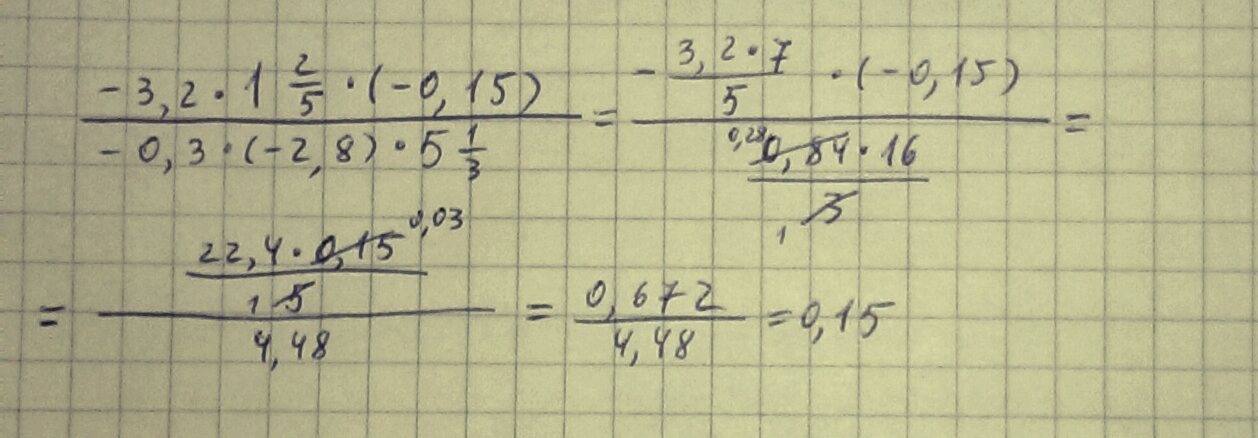 (-3,2 · 1 2/5 · (-0,15)) / (-0,3 · (-2,8) · 5 1/3) = (- (3,2 · 7)/5 · (-0,15)) / ((0,28 0,84 · 16)/(1 3)) =
= ((22,4 · 0,15 0,03)/(1 5)) / 4,48 = 0,672/4,48 = 0,15